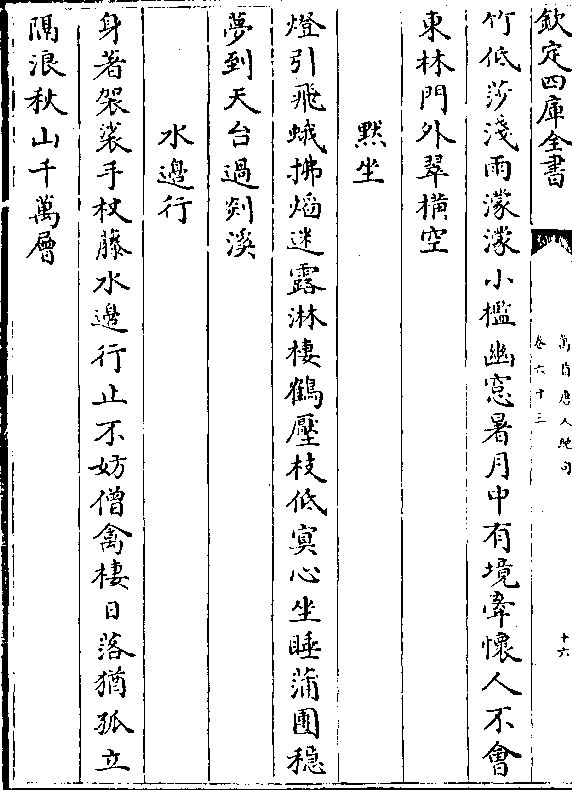 欽定四庫全書
萬首唐人絶句
卷六十三
十六
竹低莎淺雨濛濛小檻幽窓暑月中有境牽懷人不會
東林門外翠橫空
黙坐
燈引飛蛾拂熖迷露淋棲鶴壓枝低寞心坐睡蒲團穏
夢到天台過剡溪
水邊行
身著袈裟手杖藤水邊行止不妨僧禽棲日落猶孤立
隔浪秋山千萬層